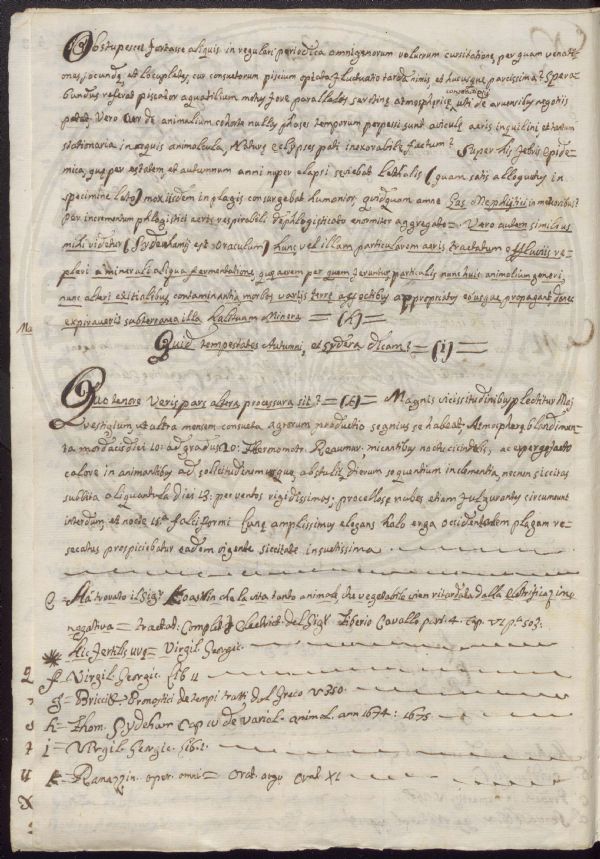 Obstupescet fortasse aliquis in regulari periodica omnigenorum volucrum cursitatione, per quam venati-
ones jocundę, et locupletes, cur consuetorum piscium optata fluctuatio tarda nimis, et hucusque parcissima? Spera-
bundus referat piscator aquatilium motus fore parallelos serotinę atmospherię, ulti de aruensibus negotiis
constat
patet. Vero cur de animalium cohorte nullus phases temporum perpessi sunt aviculę aeris inquilini et tantum
stationaria in aquis animalcula, Naturę eclypses pati inexorabile factum? Super his Febris epide-
mica, quę per ęstatem, et autumnum anni nuper elapsi sęviebat Lethalis (quam satis alloquutus in
specimine Loto) mox iisdem in plagis consurgebat humanior quidquam amne Gas Mephitici in
per incrementum phlogistici aeris respirabili dephlogisticato enormiter aggregato = Vero autem similius
mihi videtur (Sydenhamij est oraculum) hunc vel illam particularem aeris tractatum effluviis re-
pleri a minerali aliqua fermentatione, quę aerem per quem feruntur particulis nunc huic animalium generi,
nunc alteri exitialibus contaminantia, morbos variis terrę affectibus appropriatos eousque propagant, donec
expiraverit subterranea illa halituum Minera = (h) =
Quid tempestates Autumni, et sydera dicam? = (i) =
Quo tenore Veris pars altera processura sit? = (k) = Magnis vicissitudinibus plectitur Maj
vestigium, et altra mensem consueta agrorum productio segnius se habeat; Atmospherę blandimen-
ta mordacis diei 10: ad gradus 20: Thermometr: Reaumur: micantibus noctu cicindelis, ac expergefacto
calore in animantibus ad solicitudinem usque, abstulit dierum sequentium inclementia, necnon siccitas
sublata aliquantula diei 13: per ventos rigidissimos; procellosę nubes etiam fulgurantes circumeunt
interdum, et nocte 15.ta falciformi Lunę amplissimus elegans halo erga occidentalem plagam re-
secatus prospiciebatur eadem vigente siccitate insuetissima.
e = Ha trovato il Sig.r Koastlin che la vita tanto animale che vegetabile vien ritardata dalla Elettrificaz.ne
negativa = Trattat: Complet d' Elettricit: del Sig.r Tiberio Cavallo part: 4. cap. VI p.a 503:
Hic fertilis uvę = Virgil. Georgic.
f = Virgil. Georgic. Lib. II
g = Bricci = Pronostici de tempi tratti dal Greco V 350.
h = Thom. Sydeham Cap IV de variol. animal. ann 1674: 1675
i = Virgil. Georgic. Lib. I.
k = Ramazzin. oper. omni = Orat. argu